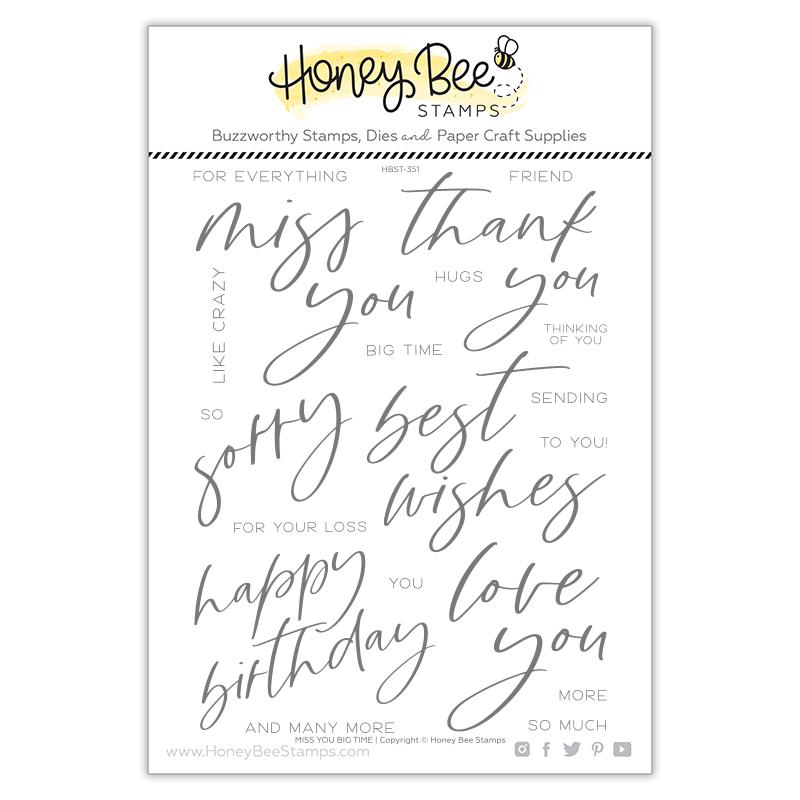 Honey Bee
STAMPS
Buzzworthy Stamps, Dies and Paper Craft Supplies
HBST-351
FOR EVERYTHING
FRIEND
miss
you
thank
you
HUGS
LIKE CRAZY
BIG TIME
THINKING
OF YOU
SO
sorry
best
wishes
SENDING
TO YOU!
FOR YOUR LOSS
happy
birthday
YOU
love
you
MORE
AND MANY MORE
SO MUCH
MISS YOU BIG TIME | Copyright © Honey Bee Stamps
www.HoneyBeeStamps.com